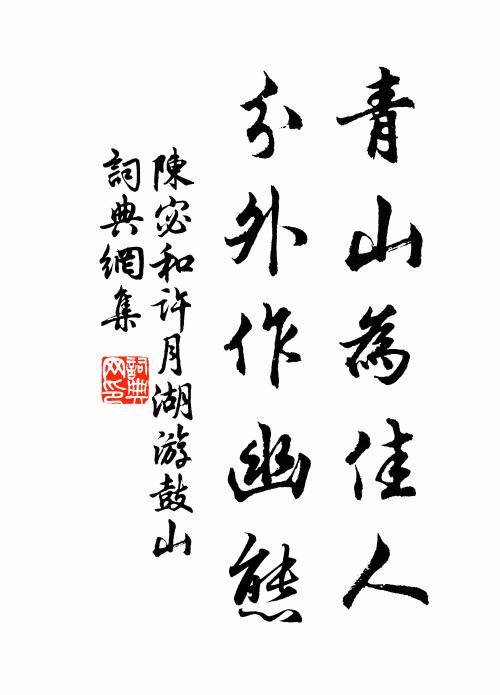 青山為佳人
分外作幽態
陳宓和許月湖游鼓山
詞典網集
詞典網印